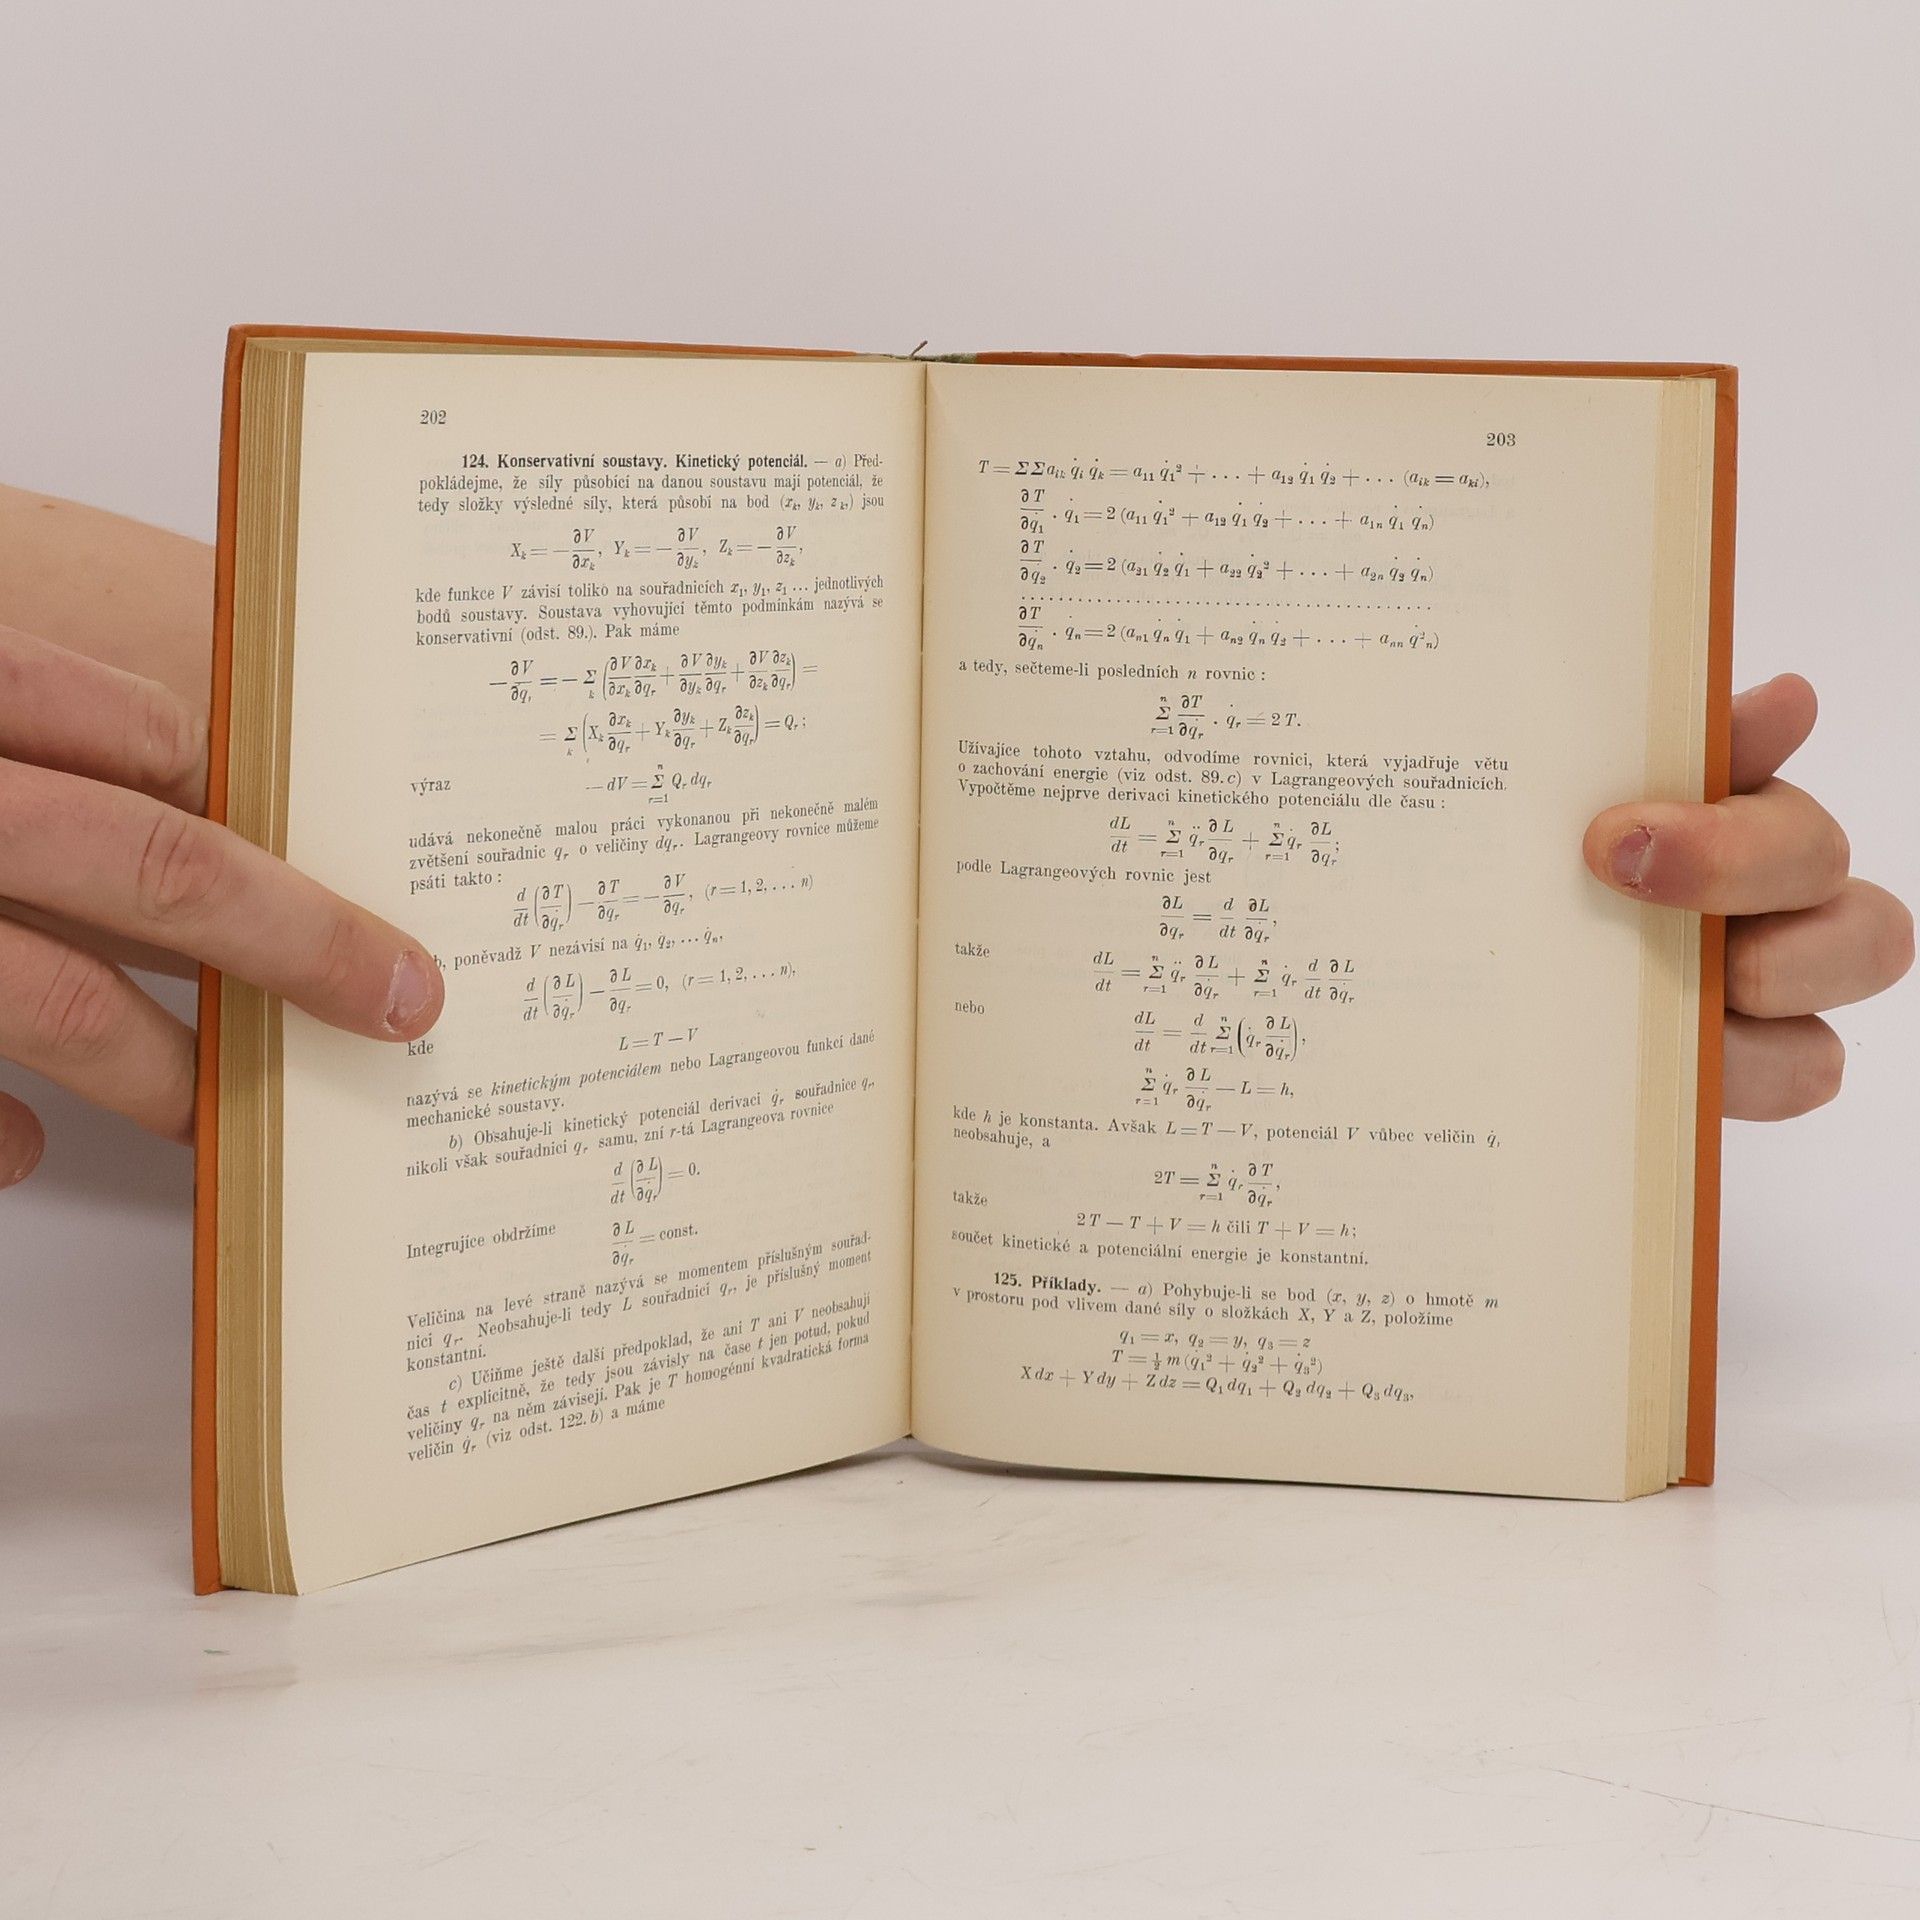 202
124. Konservativní soustavy. Kinetický potenciál. — a) Před-
pokládejme, že síly působící na danou soustavu mají potenciál, že
tedy složky výsledné síly, která působí na bod (xₖ, yₖ, zₖ,) jsou
Xₖ = − ∂V/∂xₖ, Yₖ = − ∂V/∂yₖ, Zₖ = − ∂V/∂zₖ,
kde funkce V závisí toliko na souřadnicích x₁, y₁, z₁ ... jednotlivých
bodů soustavy. Soustava vyhovující těmto podmínkám nazývá se
konservativní (odst. 89.). Pak máme
− ∂V/∂qᵣ = − Σₖ (∂V/∂xₖ ∂xₖ/∂qᵣ + ∂V/∂yₖ ∂yₖ/∂qᵣ + ∂V/∂zₖ ∂zₖ/∂qᵣ) =
= Σₖ (Xₖ ∂xₖ/∂qᵣ + Yₖ ∂yₖ/∂qᵣ + Zₖ ∂zₖ/∂qᵣ) = Qᵣ;
výraz − dV = Σ_{r=1}^{n} Qᵣ dqᵣ
udává nekonečně malou práci vykonanou při nekonečně malém
zvětšení souřadnic qᵣ o veličiny dqᵣ. Lagrangeovy rovnice můžeme
psáti takto:
d/dt (∂T/∂q̇ᵣ) − ∂T/∂qᵣ = − ∂V/∂qᵣ, (r = 1, 2, . . . n)
poněvadž V nezávisí na q̇₁, q̇₂, ... q̇ₙ,
d/dt (∂L/∂q̇ᵣ) − ∂L/∂qᵣ = 0, (r = 1, 2, . . . n),
kde L = T − V
nazývá se kinetickým potenciálem nebo Lagrangeovou funkcí dané
mechanické soustavy.
b) Obsahuje-li kinetický potenciál derivaci q̇ᵣ souřadnice qᵣ,
nikoli však souřadnici qᵣ samu, zní r-tá Lagrangeova rovnice
d/dt (∂L/∂q̇ᵣ) = 0.
Integrujíce obdržíme ∂L/∂q̇ᵣ = const.
Veličina na levé straně nazývá se momentem příslušným souřad-
nici qᵣ. Neobsahuje-li tedy L souřadnici qᵣ, je příslušný moment
konstantní.
c) Učiňme ještě další předpoklad, že ani T ani V neobsahují
čas t explicitně, že tedy jsou závisly na čase t jen potud, pokud
veličiny qᵣ na něm závisejí. Pak je T homogénní kvadratická forma
veličin q̇ᵣ (viz odst. 122. b) a máme
203
T = Σ Σ aᵢₖ q̇ᵢ q̇ₖ = a₁₁ q̇₁² + . . . + a₁₂ q̇₁ q̇₂ + . . . (aᵢₖ = aₖᵢ),
∂T/∂q̇₁ . q̇₁ = 2 (a₁₁ q̇₁² + a₁₂ q̇₁ q̇₂ + . . . + a₁ₙ q̇₁ q̇ₙ)
∂T/∂q̇₂ . q̇₂ = 2 (a₂₁ q̇₂ q̇₁ + a₂₂ q̇₂² + . . . + a₂ₙ q̇₂ q̇ₙ)
. . . . . . . . . . . . . . . . . . . . . . . . . . . . . . . . . . . . . . .
∂T/∂q̇ₙ . q̇ₙ = 2 (aₙ₁ q̇ₙ q̇₁ + aₙ₂ q̇ₙ q̇₂ + . . . + aₙₙ q̇²ₙ)
a tedy, sečteme-li posledních n rovnic:
Σ_{r=1}^{n} ∂T/∂q̇ᵣ . q̇ᵣ = 2 T.
Užívajíce tohoto vztahu, odvodíme rovnici, která vyjadřuje větu
o zachování energie (viz odst. 89. c) v Lagrangeových souřadnicích.
Vypočtěme nejprve derivaci kinetického potenciálu dle času:
dL/dt = Σ_{r=1}^{n} q̈ᵣ ∂L/∂q̇ᵣ + Σ_{r=1}^{n} q̇ᵣ ∂L/∂qᵣ;
podle Lagrangeových rovnic jest
∂L/∂qᵣ = d/dt ∂L/∂q̇ᵣ,
takže
dL/dt = Σ_{r=1}^{n} q̈ᵣ ∂L/∂q̇ᵣ + Σ_{r=1}^{n} q̇ᵣ d/dt ∂L/∂q̇ᵣ
nebo
dL/dt = d/dt Σ_{r=1}^{n} (q̇ᵣ ∂L/∂q̇ᵣ),
Σ_{r=1}^{n} q̇ᵣ ∂L/∂q̇ᵣ − L = h,
kde h je konstanta. Avšak L = T − V, potenciál V vůbec veličin q̇ᵣ
neobsahuje, a
2T = Σ_{r=1}^{n} q̇ᵣ ∂T/∂q̇ᵣ,
takže
2 T − T + V = h čili T + V = h;
součet kinetické a potenciální energie je konstantní.
125. Příklady. — a) Pohybuje-li se bod (x, y, z) o hmotě m
v prostoru pod vlivem dané síly o složkách X, Y a Z, položíme
q₁ = x, q₂ = y, q₃ = z
T = ½ m (q̇₁² + q̇₂² + q̇₃²)
X dx + Y dy + Z dz = Q₁ dq₁ + Q₂ dq₂ + Q₃ dq₃,